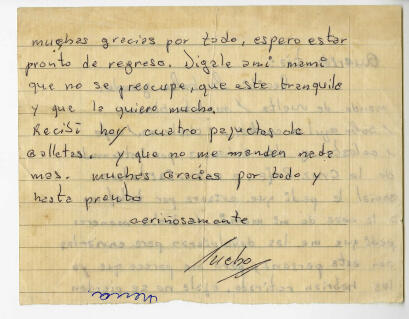 muchas gracias por todo, espero estar
pronto de regreso. Digale a mi mami
que no se preocupe, que este tranquila
y que la quiero mucho.
Recibí hoy cuatro paquetes de
Galletas. y que no me manden nada
mas. muchas Gracias por todo y
hasta pronto
cariñosamente
Lucho